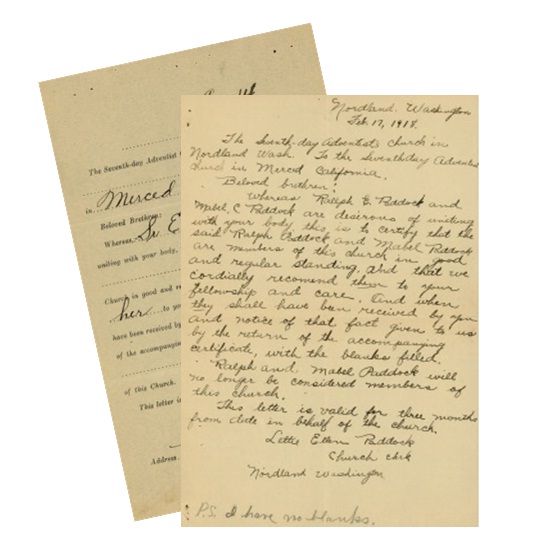 The Seventh-day Adventist
in Merced
Beloved Brethren:
Whereas, Sr. E
uniting with your body,
Church in good and re
her to yo
have been received by
of the accompanyin
of this Church.
This letter i
Address,
Nordland. Washington
Feb. 17, 1918.
The Seventh-day Adventist's church in
Nordland Wash. To the Seventh day Adventist
church in Merced California.
Beloved brethren:
Whereas Ralph E. Paddock and
Mabel C Paddock are desirous of uniting
with your body this is to certify that the
said Ralph Paddock and Mabel Paddock
are members of this church in good
and regular standing, and that we
cordially recomend them to your
fellowship and care. And when
they shall have been received by you
and notice of that fact given to us
by the return of the accompanying
certificate, with the blanks filled.
Ralph and Mabel Paddock will
no longer be considered members of
this church.
This letter is valid for three months
from date in behalf of the church.
Lettie Ellen Paddock
Church clerk
Nordland Washington
P.S. I have no blanks.